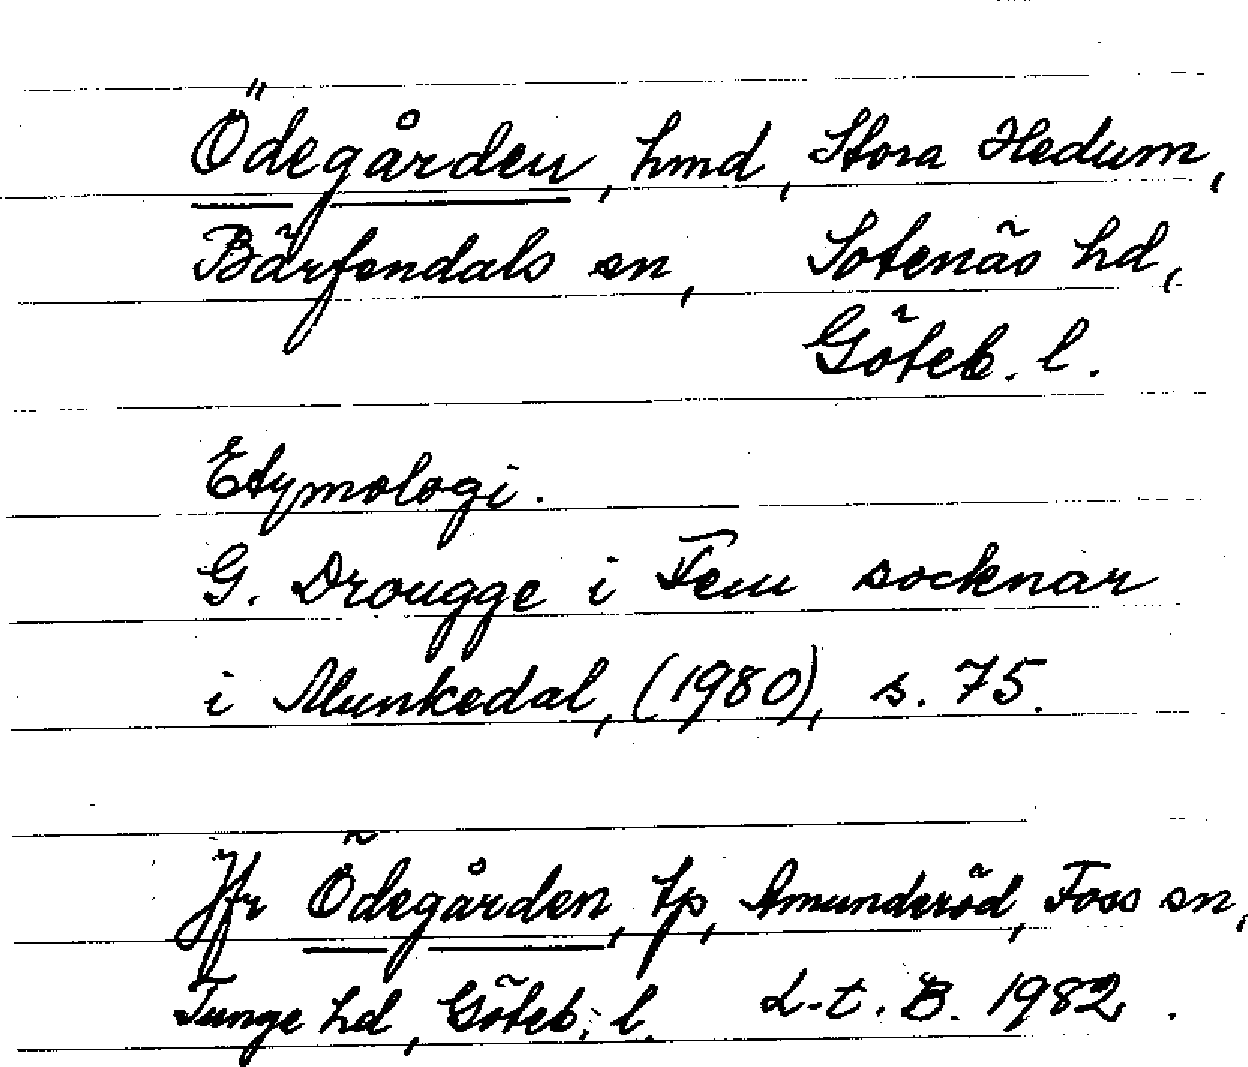 Ödegården, hmd, Stora Hedum,
Bärfendals sn, Sotenäs hd,
Göteb. l.
Etymologi.
G. Drougge i Fem socknar
i Munkedal, (1980), s. 75.
Jfr Ödegården, tp, Amunderöd, Foss sn,
Tunge hd, Göteb. l. L.t.B. 1982.